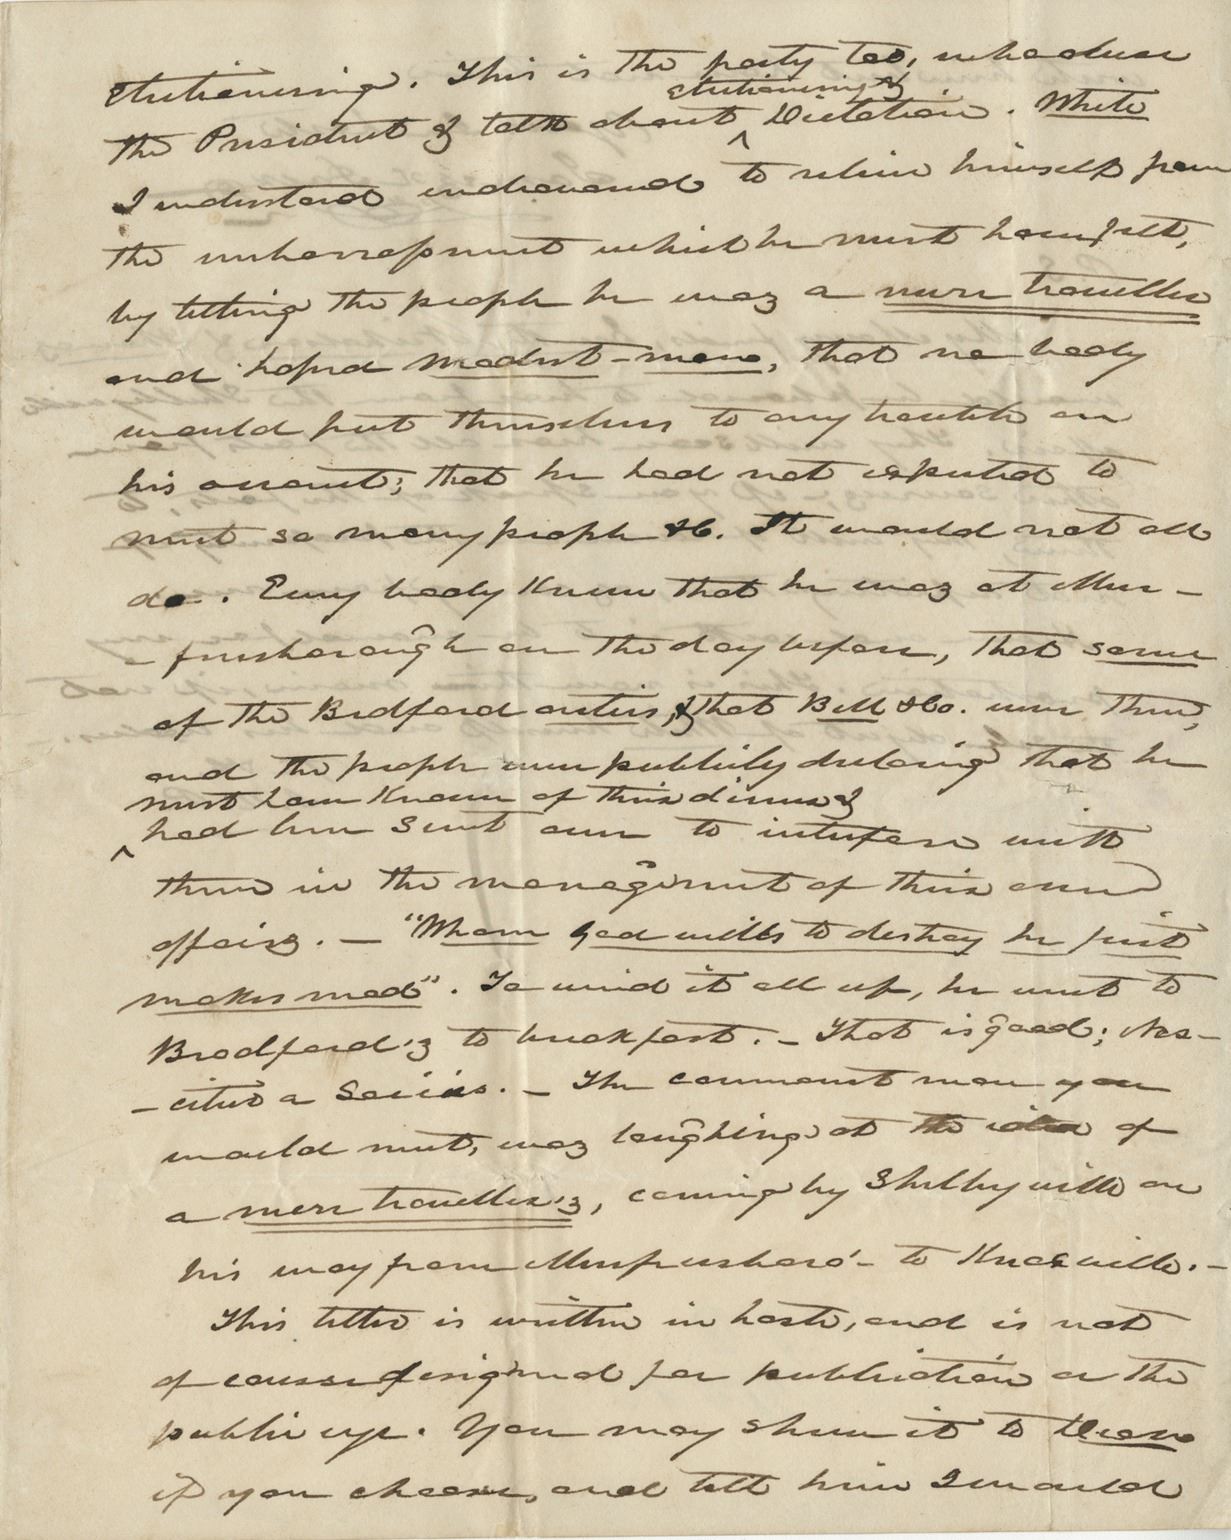 electioneering. This is the party too, who abuse
electioneering &
the President & talk about ^ Dictation. White
I understand endeavoured to relieve himself from
the embarrassment which he must have felt,
by telling the people he was a mere traveller
and hoped modest-man, that no body
would put themselves to any trouble on
his account; that he had not expected to
meet so many people &c. It would not all
do. Every body knew that he was at Mur-
-freesborough on the day before, that some
of the Bedford were there, & that Bell & Co. were there,
and the people were publicly declaring that he
must have known of this dinner &
^ had been sent over to interfere with
them in the management of their own
affairs. — "Whom God wills to destroy he first
makes mad". To wind it all up, he went to
Bradford's to breakfast. — That is good; Nos-
-citur a Sociis. — The commonest man you
would meet, was laughing at the idea of
a mere traveller's, coming by Shelbyville on
his way from Murfreesboro' - to Knoxville. —
This letter is written in haste, and is not
of course designed for publication or the
public eye. You may shew it to
if you choose, and tell him I would